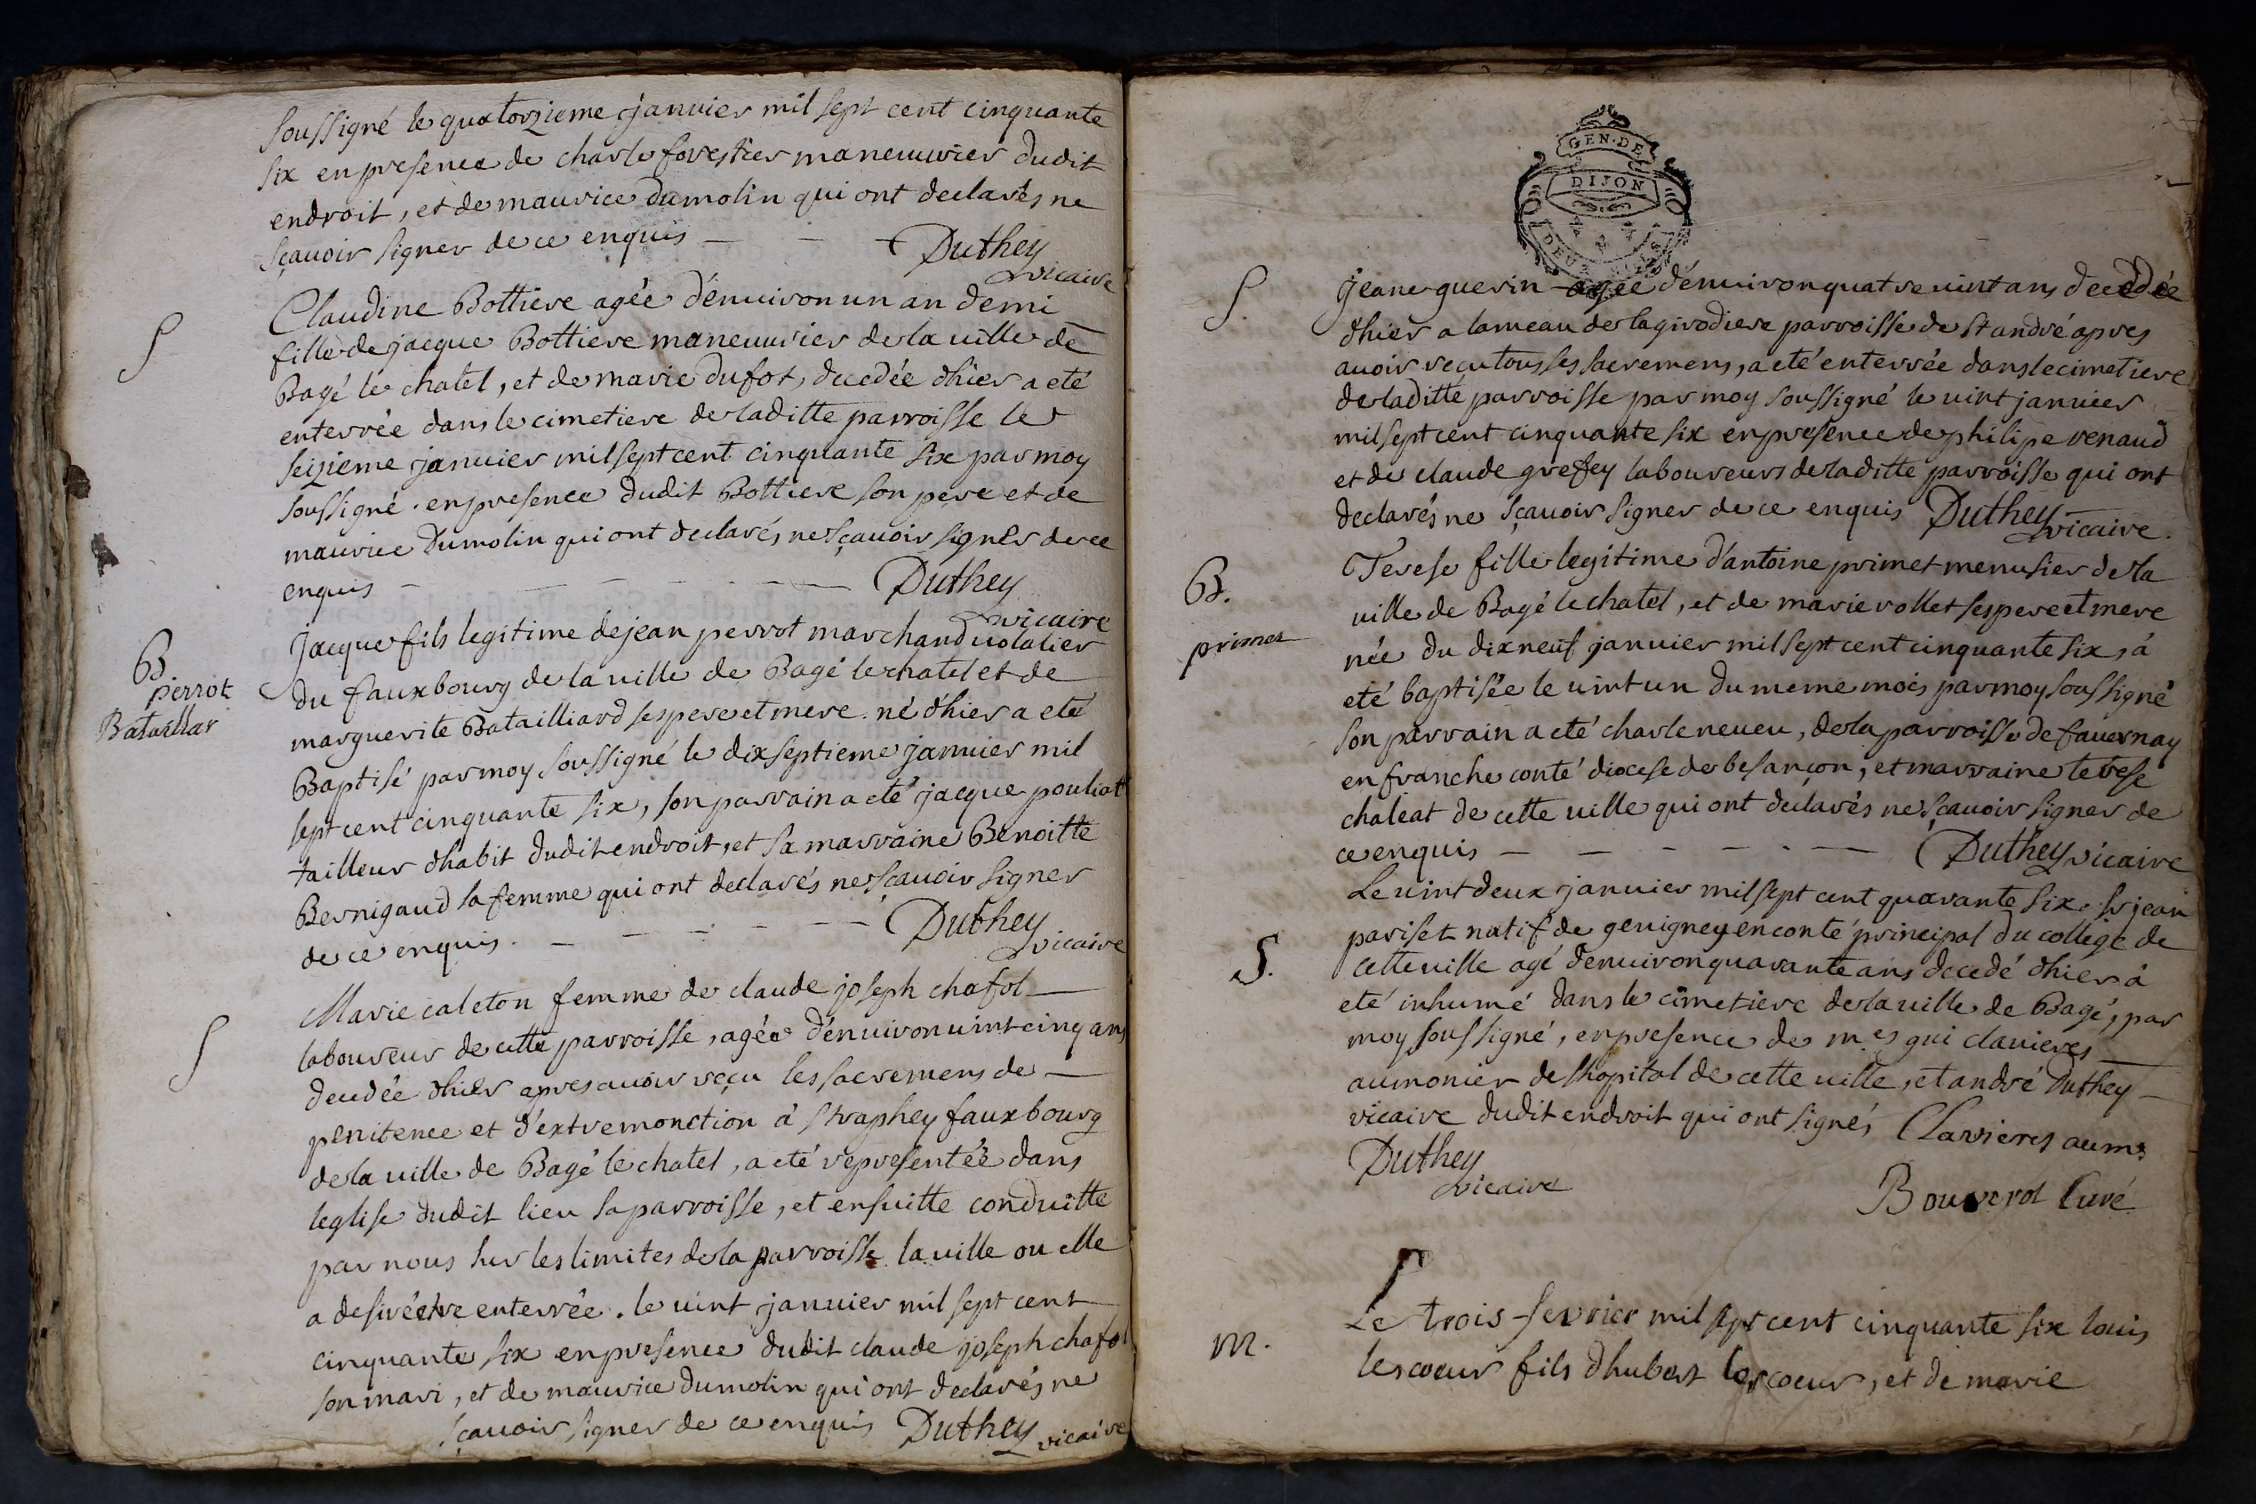 soussigné le quatorzieme janvier mil sept cent cinquante
six en presence de charle forestier maneuvrier dudit
endroit, et de maurice dumolin qui ont declarés ne
sçavoir signer de ce enquis — — — Duthey
vicaire
S
Claudine Bottiere agée d'énuiron un an demi
fille de jacque Bottiere maneuurier de la uille de
Bagé le chatel, et de marie dufot, decedée d'hier a eté
enterrée dans le cimetiere de laditte parroisse le
seizieme januier mil sept cent cinquante six par moy
soussigné. en presence dudit Bottiere son pere et de
maurice Dumolin qui ont declarés ne sçavoir signer de ce
enquis — — — — Duthey
vicaire
B
pierrot
Bataillar
jacque fils legitime de jean perrot marchand uolalier
du fauxbourg de la uille de Bagé le chatel et de
marguerite Batailliard ses pere et mere. né d'hier a eté
Baptisé par moy soussigné le dixseptieme januier mil
sept cent cinquante six, son parrain a eté jacque pouliat
tailleur d'habit dudit endroit, et sa marraine Benoitte
Bernigaud sa femme qui ont declarés ne sçauoir signer
de ce enquis. — — — — Duthey
vicaire
S
Marie caleton femme de claude joseph chafol —
laboureur de cette parroisse, agée d'énuiron uint cinq ans
decedée d'hier apres auoir reçu les sacremens de —
penitence et d'extremonction à straphey fauxbourg
de la uille de Bagé le chatel, a eté representée dans
leglise dudit lieu sa parroisse, et ensuitte conduitte
par nous sur les limites de la parroisse la uille ou elle
a desiré etre enterrée. le uint januier mil sept cent
cinquante six en presence dudit claude joseph chafol
son mari, et de maurice dumolin qui ont declarés ne
sçauoir signer de ce enquis Duthey vicaire
GEN·DE
DIJON
DEUX
S.
jeane guerin agée d'énuiron quatre uint ans decedée
d'hier a lameau de la girodiere parroisse de st andré apres
auoir recu tous ses sacremens, a eté enterrée dans le cimetiere
de laditte parroisse par moy soussigné le uint januier
mil sept cent cinquante six en presence de philipe renaud
et de claude greffey laboureurs de laditte parroisse qui ont
declarés ne sçauoir signer de ce enquis Duthey vicaire.
B.
primet
Terese fille legitime d'antoine primet menusier de la
uille de Bagé le chatel, et de marie rollet ses pere et mere
née du dix neuf januier mil sept cent cinquante six, à
eté baptisée le uint un du meme mois par moy soussigné
son parrain a eté charle neueu, de la parroisse de fauernay
en franche conté diocese de besançon, et marraine terese
chaleat de cette uille qui ont declarés ne sçauoir signer de
ce enquis — — — — — Duthey vicaire
S.
Le uint deux januier mil sept cent quarante six. sr jean
pariset natif de geuigney en conté principal du college de
cette uille agé d'enuiron quarante ans decedé d'hier à
eté inhumé dans le cimetiere de la uille de Bagé, par
moy soussigné, en presence de mes gui clauieres —
aumonier de l'hopital de cette uille, et andré Duthey —
vicaire dudit endroit qui ont signés Clavieres aumr
Duthey
vicaire
Bouverot Curé
m.
Le trois feurier mil sept cent cinquante six louis
lescoeur fils d'hubert lescoeur, et de marie